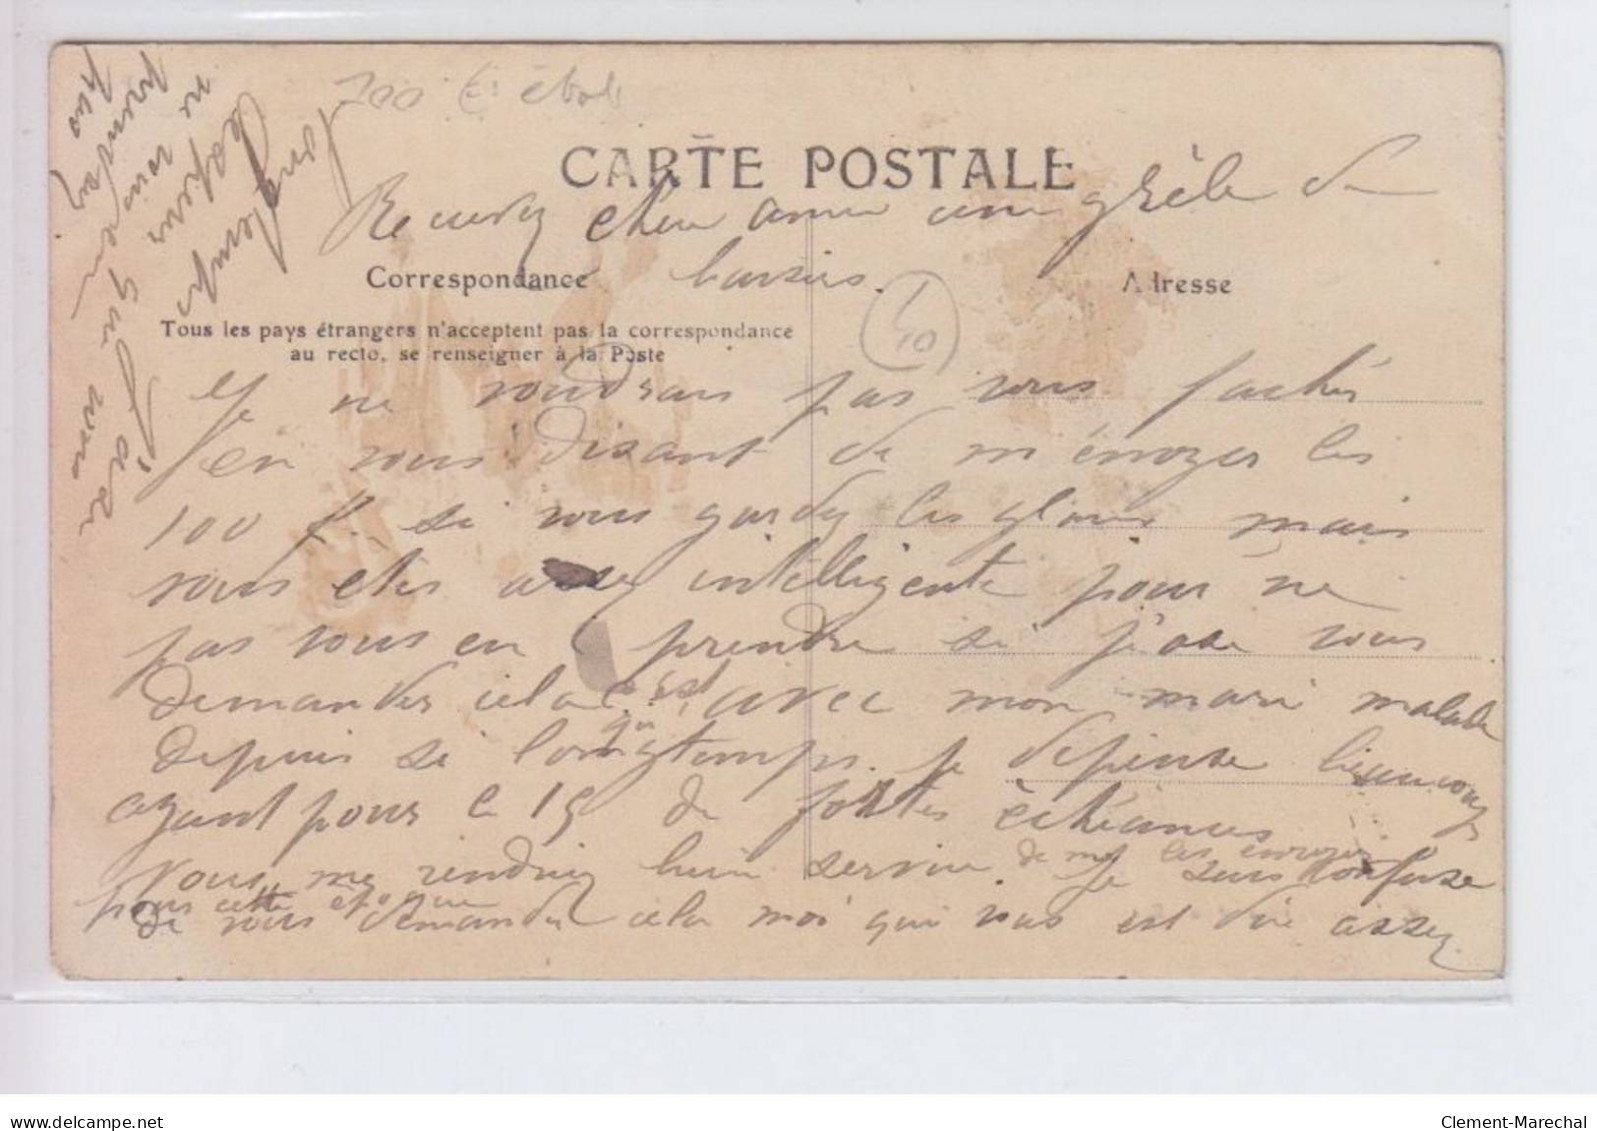 100 E: étol
CARTE POSTALE
Recevez chère amie une grèle de
baisers.
Correspondance
Adresse
Tous les pays étrangers n'acceptent pas la correspondance
au recto, se renseigner à la Poste
10
Je ne voudrais pas vous fachés
en vous disant de m'envoyer les
100 f. si vous gardez les mais
vous etes assez intelligente pour ne
pas vous en prendre si j'ose vous
demander cela c'est qu' avec mon mari malade
depuis si longtemps je dépense beaucoup
ayant pour le 15 de fortes échéances
vous me rendriez bien service de me les envoyer
pour cette époque Je suis confuse
de vous demander cela moi qui vous est due assez
longtemps
ne
prendrez
pas
Clement-Marechal